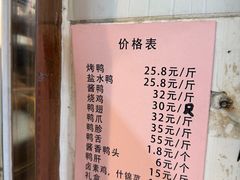 价格表
烤鸭 25.8元/斤
盐水鸭 25.8元/斤
酱鸭 32元/斤
烧鸡 30元/只
鸭翅 32元/斤
鸭爪 35元/斤
鸭胗 55元/斤
鸭舌
酱香鸭头 1.8元/个
鸭肝 6元/个
卤素鸡，什锦菜 15元/斤